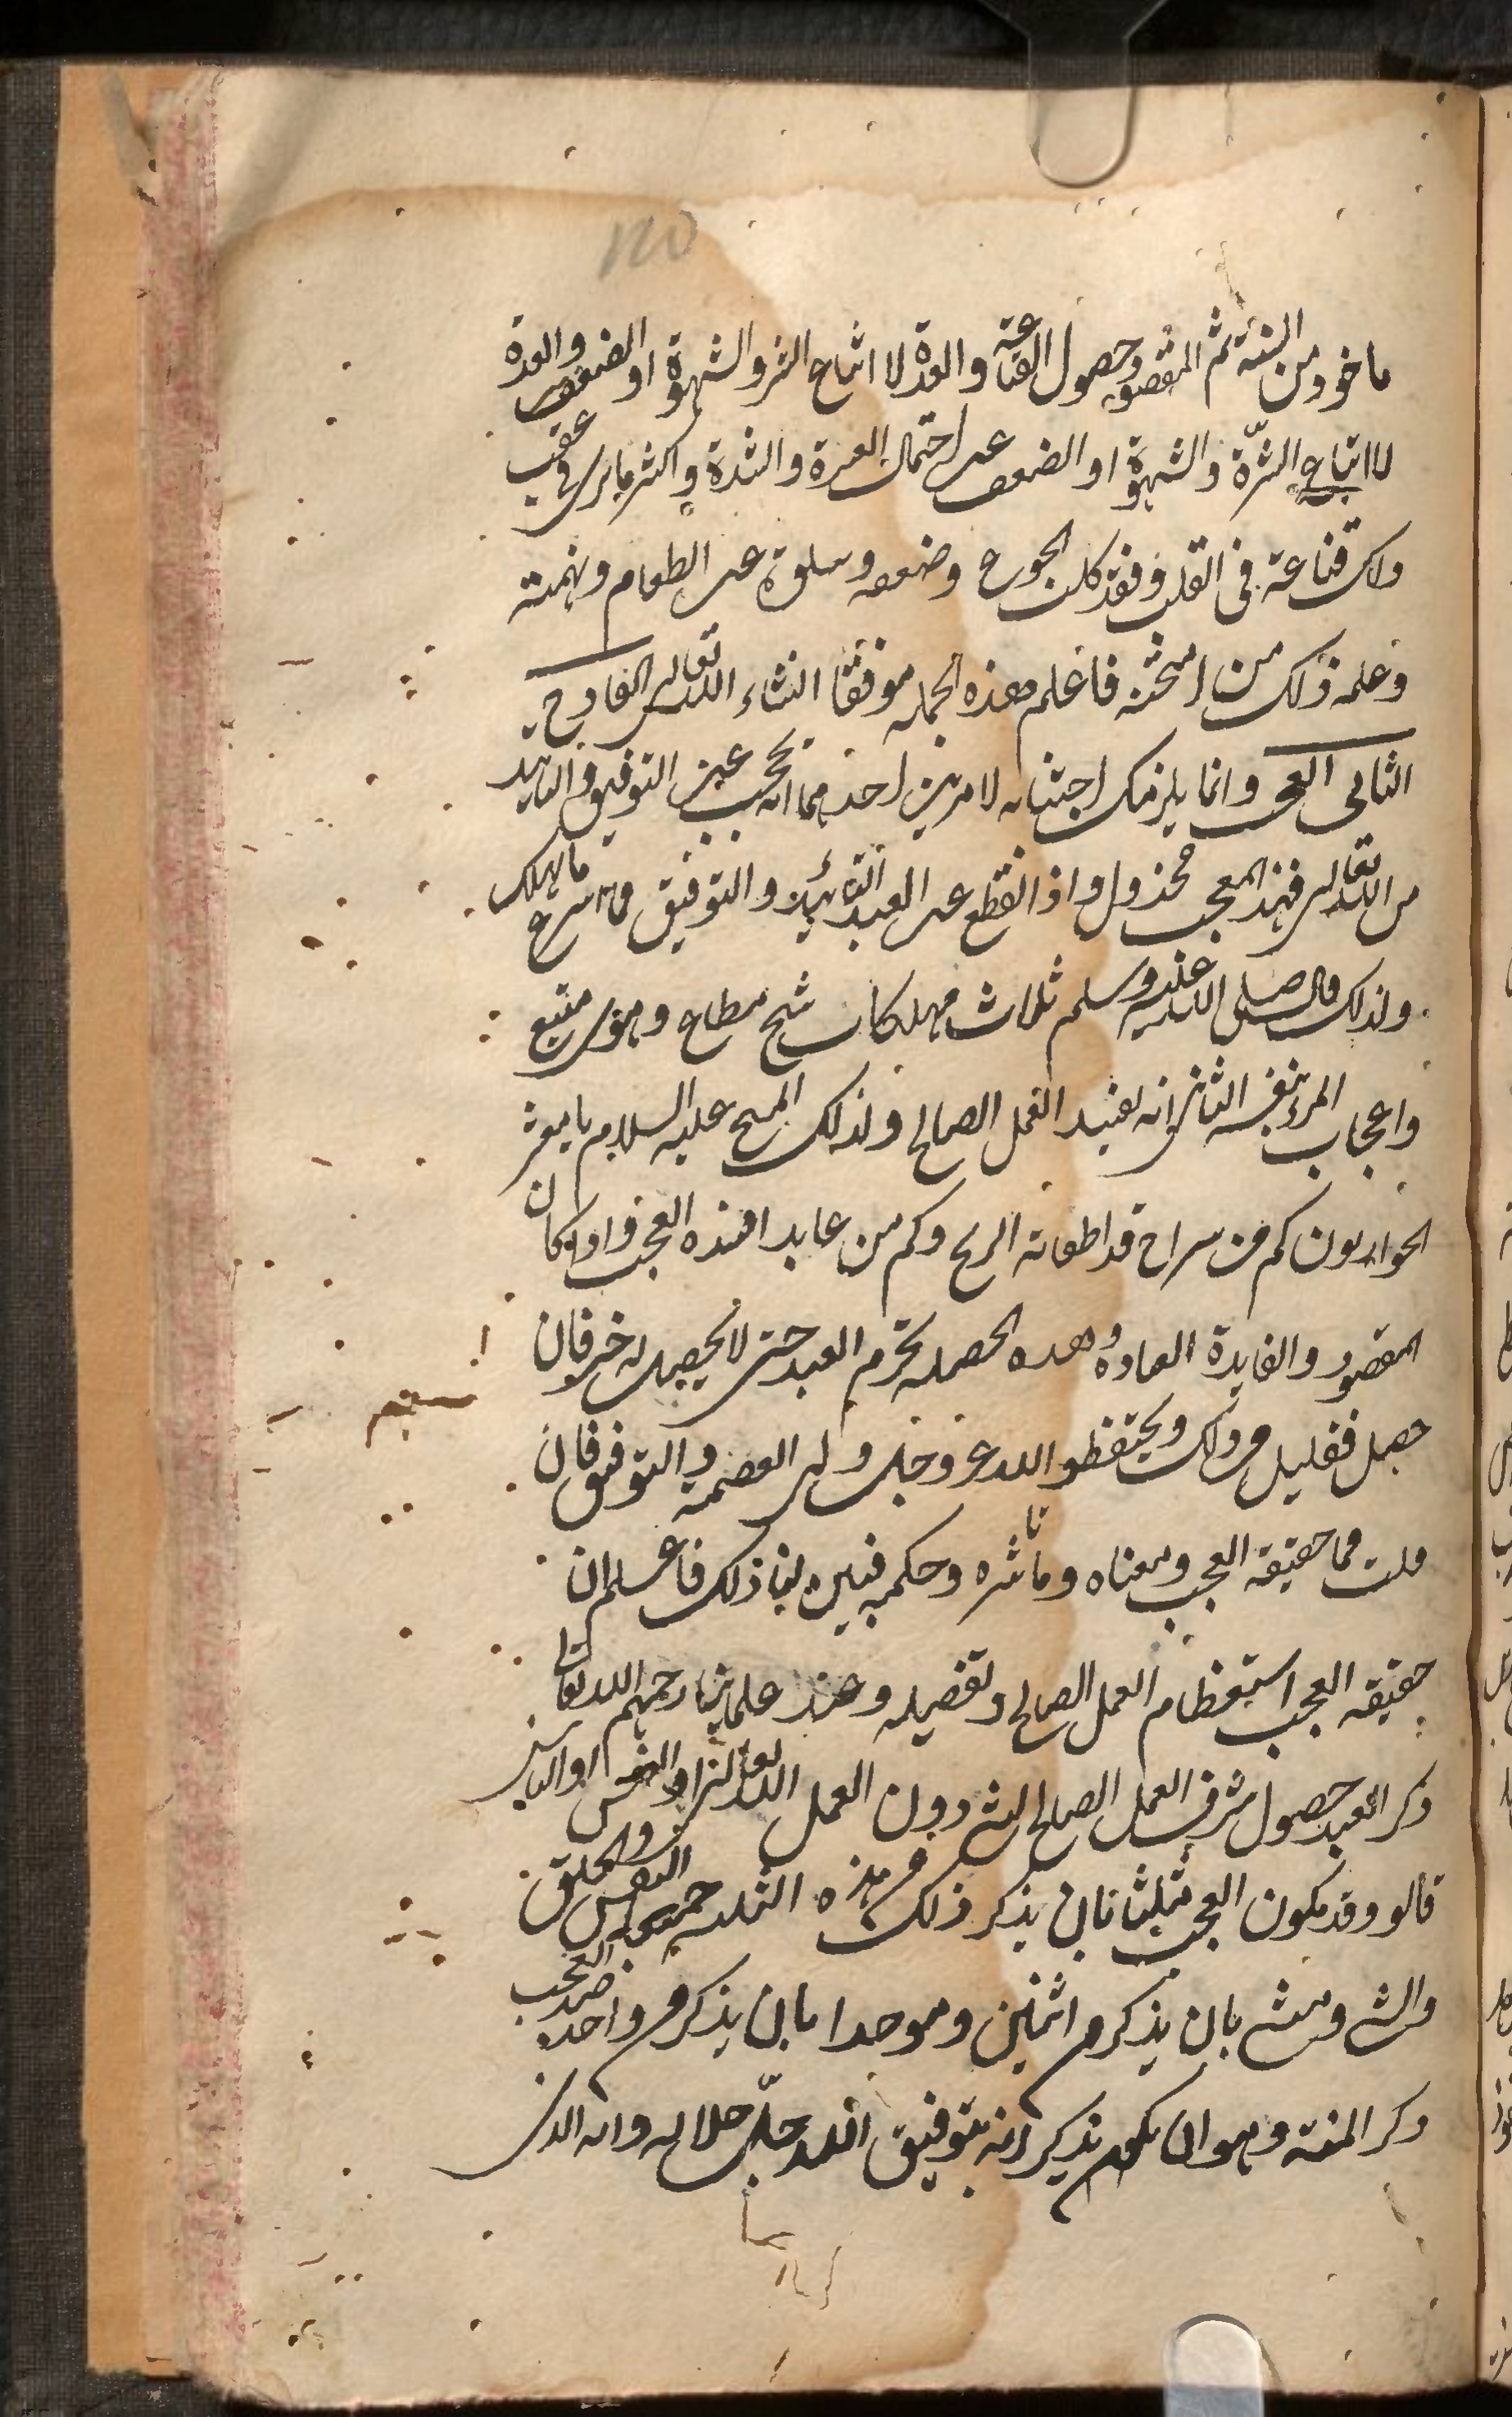 ماخوذ من السنة ثم المقصود حصول القناعة والعدة لا اتباع الشره والشهوة او الضعف والعدة
لا اتباع الشرّة والشهوة او الضعف عن احتمال العسرة والشدة واكثر ما يرى في عقب
ذلك قناعة في القلب وفقد كلب الجوع وضعفه وسلوة عن الطعام ونهمته
وعلمه ذلك من امتحنه فاعلم هذه الجملة موفقا انشاء الله تعالى القادح
الثانى العجب وانما يلزمك اجتنابه لامرين احدهما انه يحجب عن التوفيق والتاييد
من الله تعالى فهذا المعجب مخذول واذا انقطع عن العبد التائيد والتوفيق فما اسرع ما يهلك
ولذلك قال صلى الله عليه وسلم ثلاث مهلكات شح مطاع وهوى متبع
واعجاب المرء بنفسه الثانى انه يفسد العمل الصالح ولذلك المسيح عليه السلام يا معشر
الحواريون كم من سراج قد اطفاته الريح وكم من عابد افسده العجب واذا كان
المقصود والفايدة العبادة وهذه الخصلة تحرم العبد حتى لا يحصل له خير فان
حصل فقليل من ذلك ويحتفظ والله عز وجل ولى العصمة والتوفيق فان
قلت فما حقيقة العجب ومعناه وما تأثيره وحكمه فبين لنا ذلك فاعلم ان
حقيقة العجب استعظام العمل الصالح وتفصيله وعند علمائنا رحمهم الله تعالى
ذكر العبد حصول شرف العمل الصالح لشئ دون العمل الله تعالى او النفس او الناس
قالوا وقد يكون العجب مثلثا بان يذكر ذلك من هذه الثلثة جميعا النفس والخلق
والشئ ومثنى بان يذكر من اثنين وموحدا بان يذكر من واحد وضد العجب
ذكر المنة وهو ان يكون يذكر انه بتوفيق الله جل جلاله وانه الذى